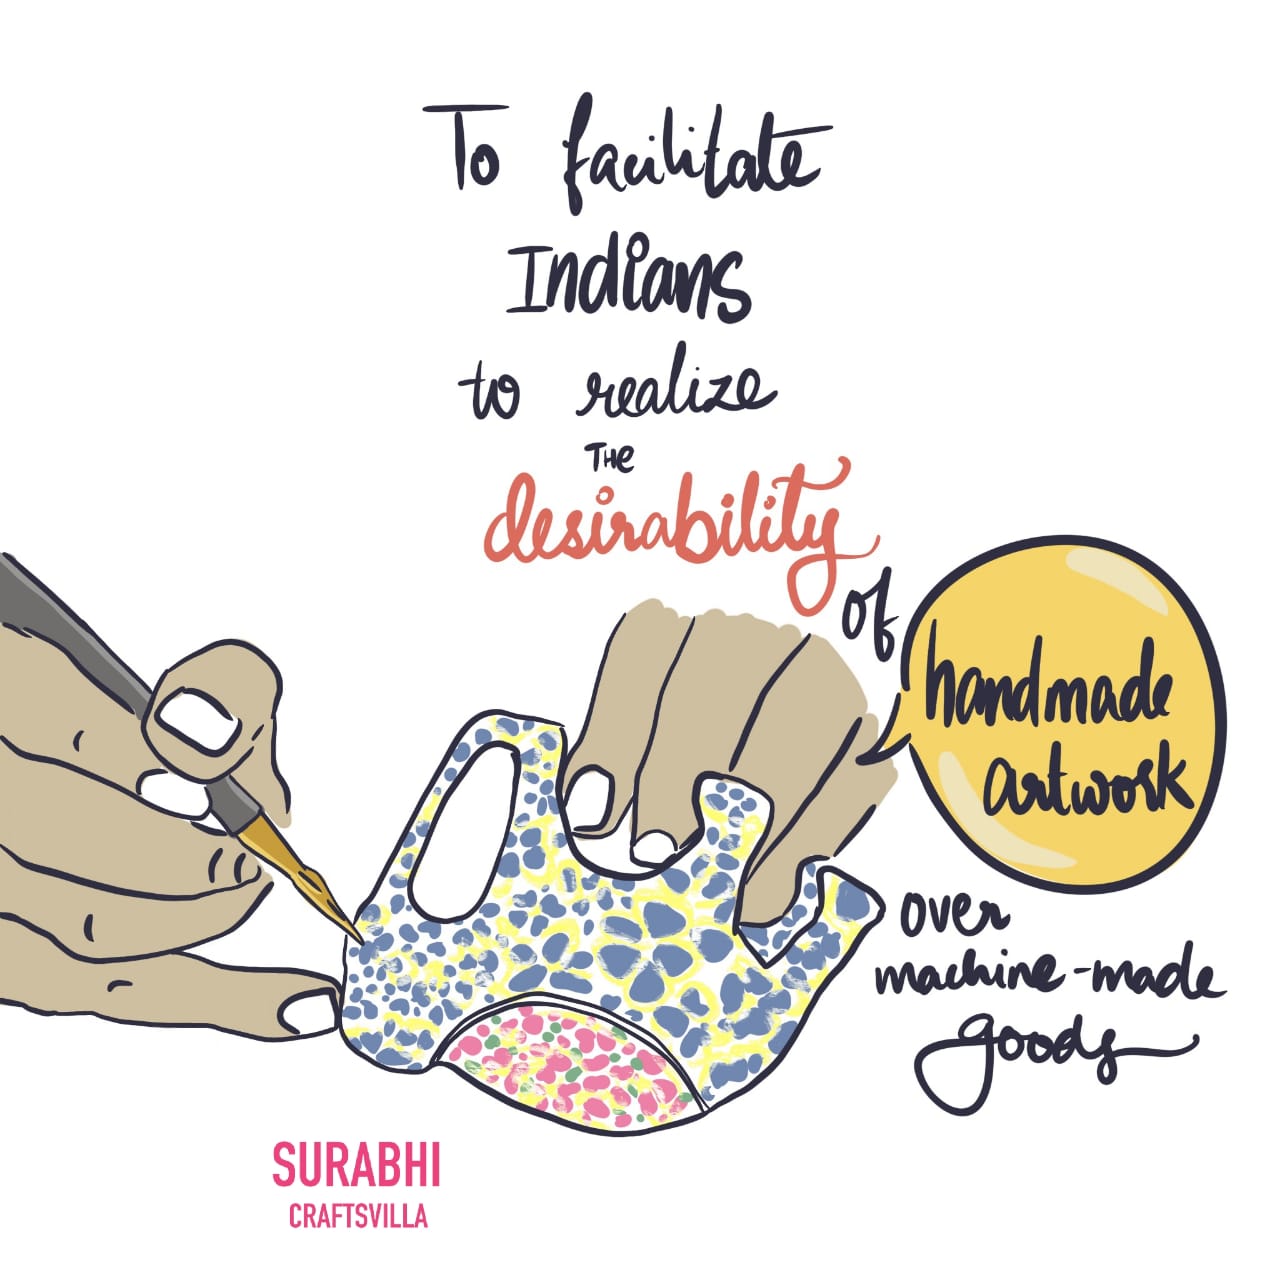 To facilitate
Indians
to realize
THe
desirability
of
handmade
artwork
over
machine-made
goods
SURABHI
CRAFTSVILLA